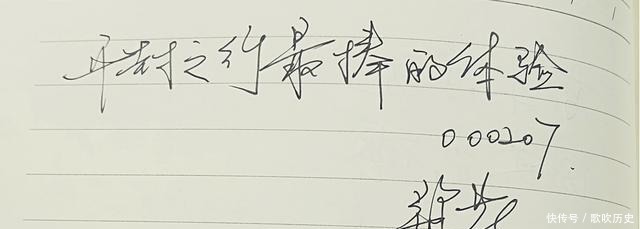 开封之行最棒的体验
000207.
快传号/歌吹历史